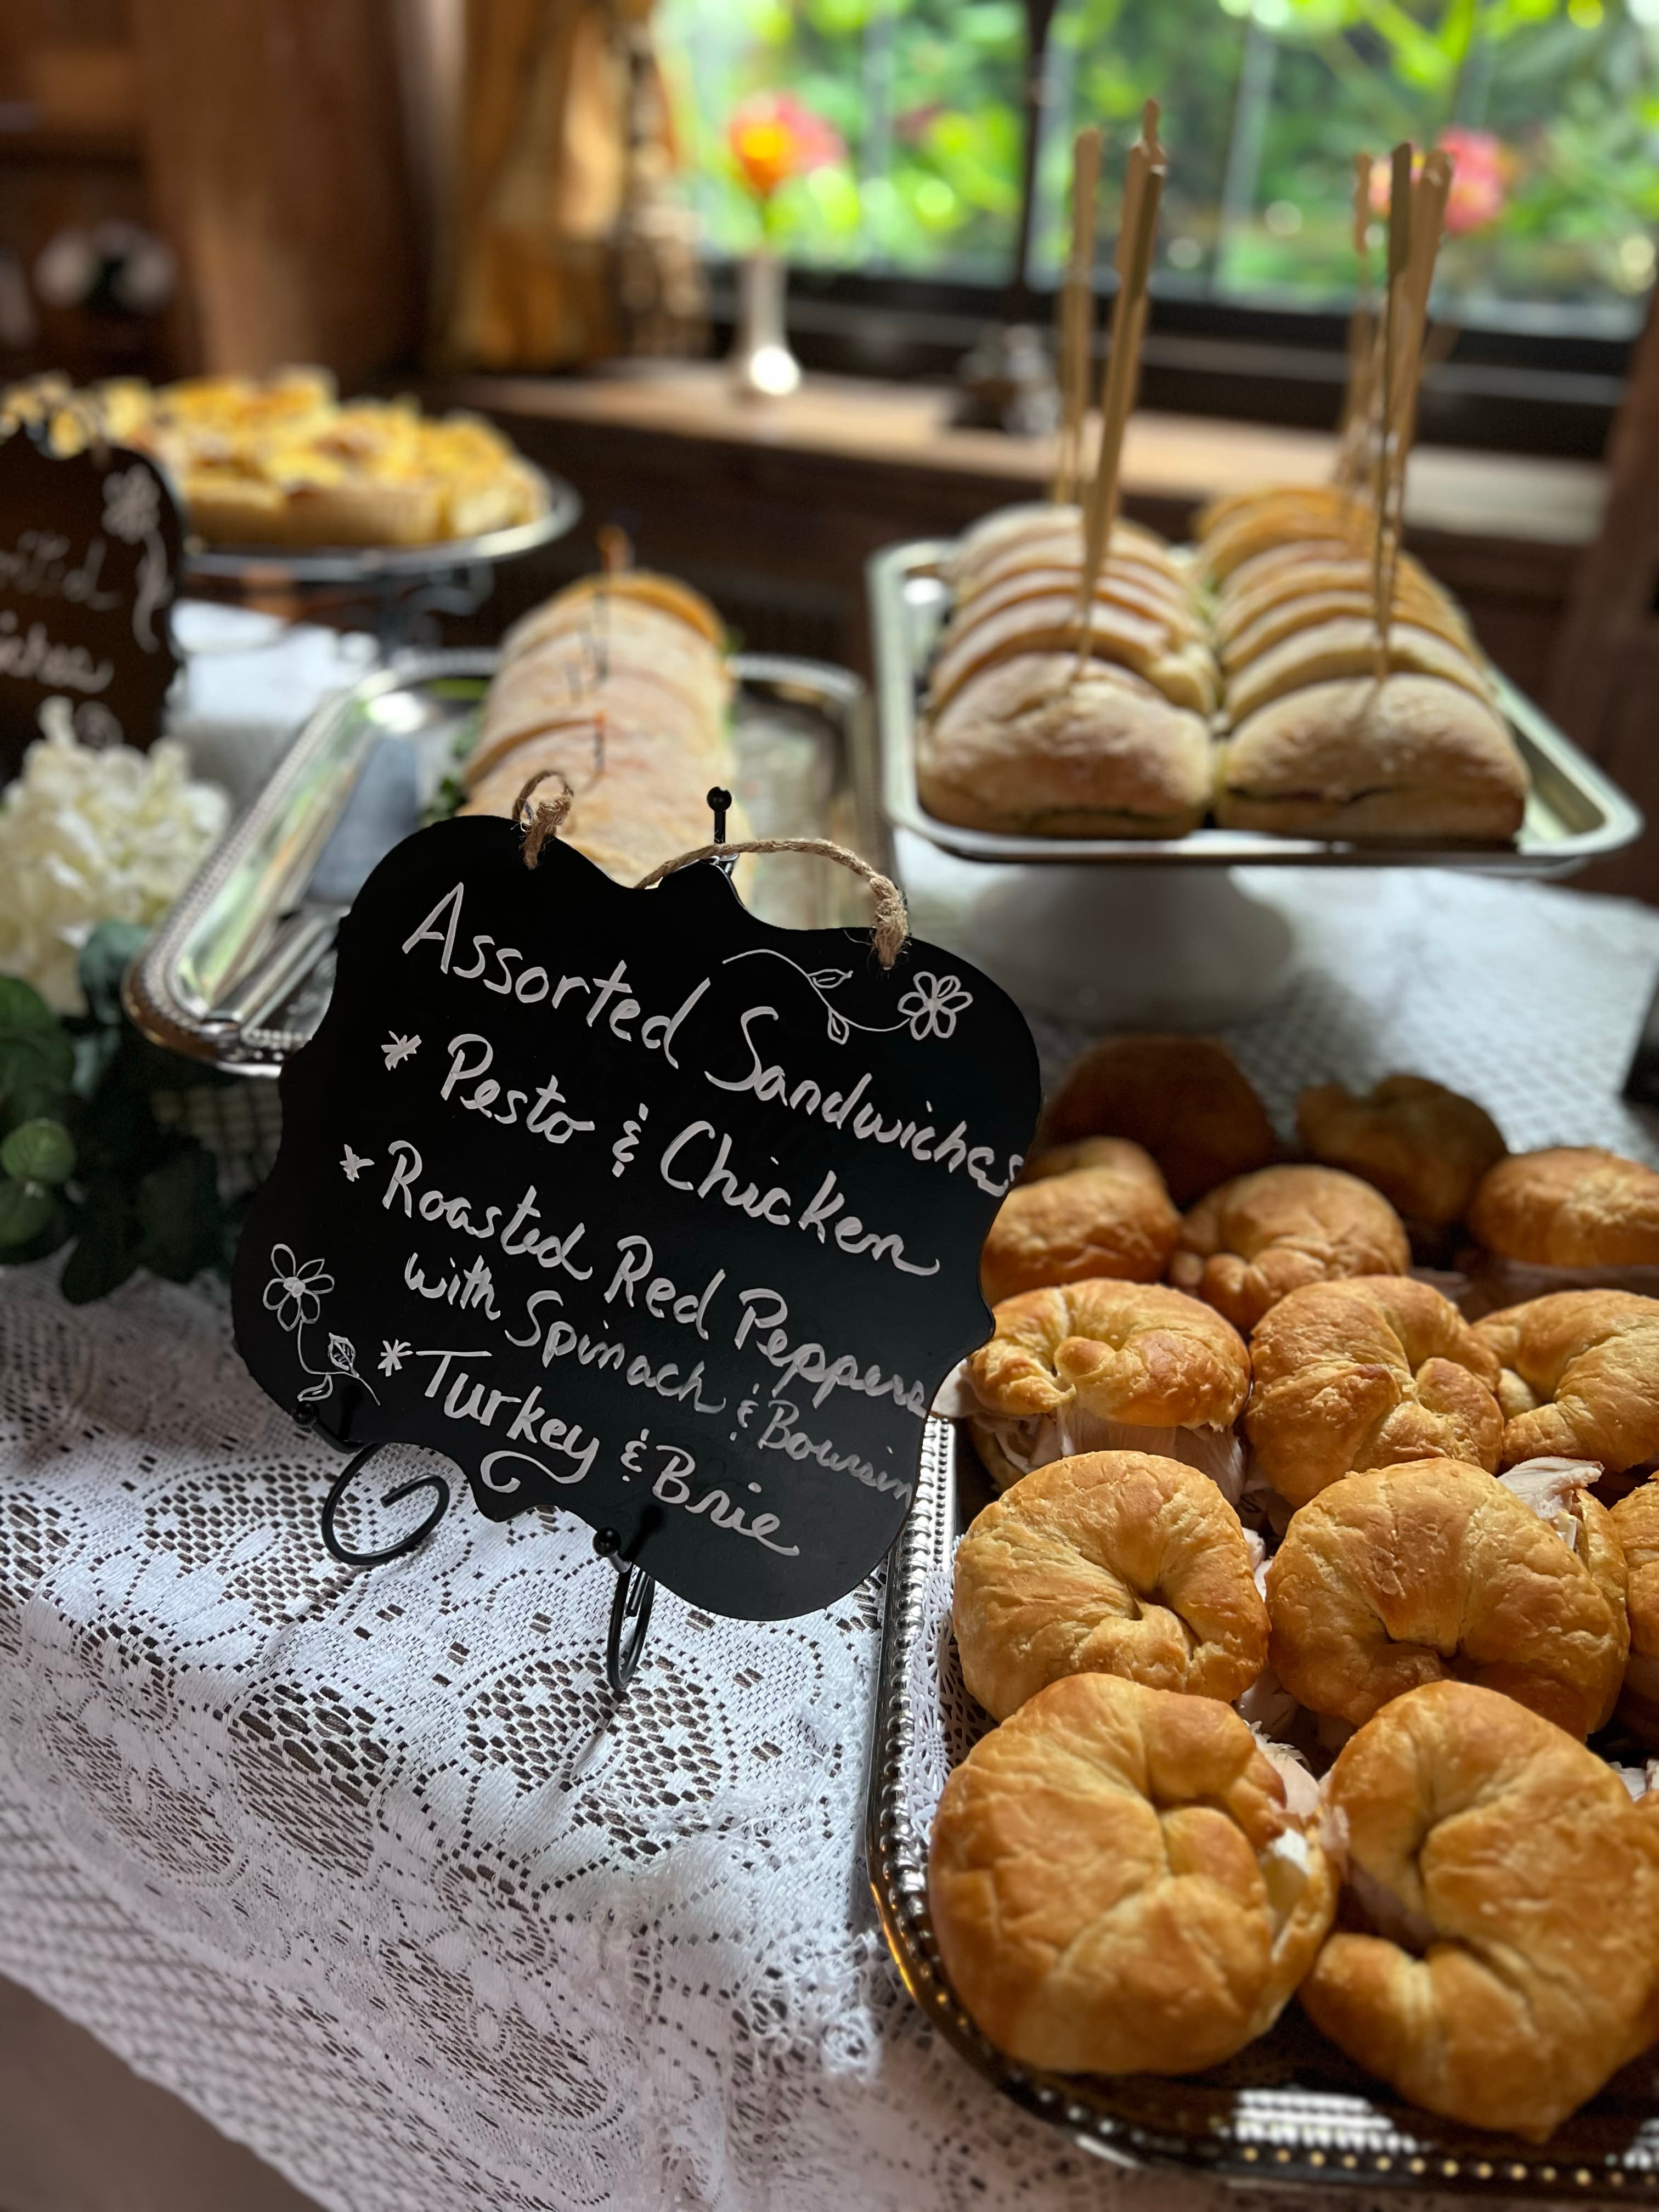 Assorted Sandwiches
* Pesto & Chicken
* Roasted Red Peppers
with Spinach & Boursin
* Turkey & Brie